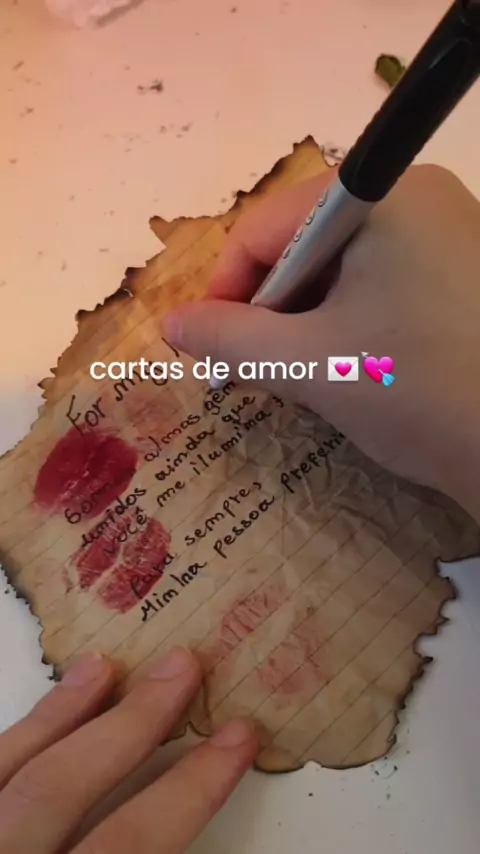 cartas de amor 💌💘
For my
Somos almas gêm
unidos ainda que
você me ilumina
Para sempre,
Minha pessoa preferi